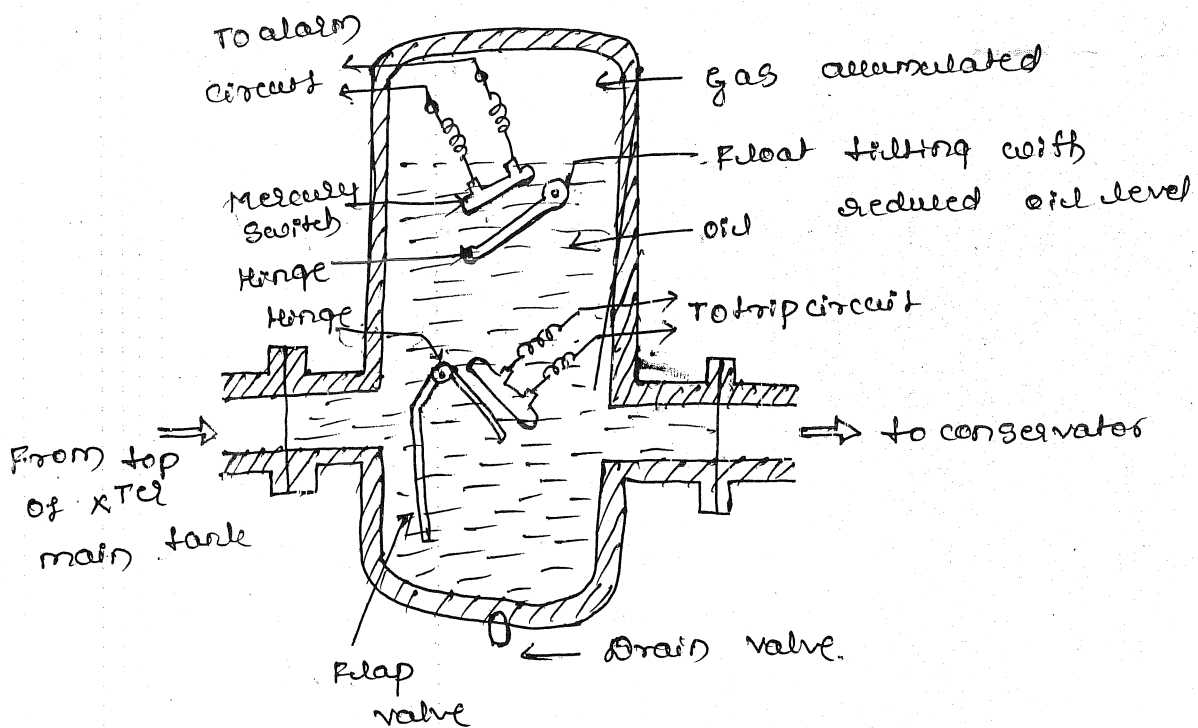 To alarm
circuit
Gas accumulated
Float tilting with
reduced oil level
Mercury
switch
oil
Hinge
Hinge
To trip circuit
From top
of xTer
main tank
to conservator
Flap
valve
Drain valve.